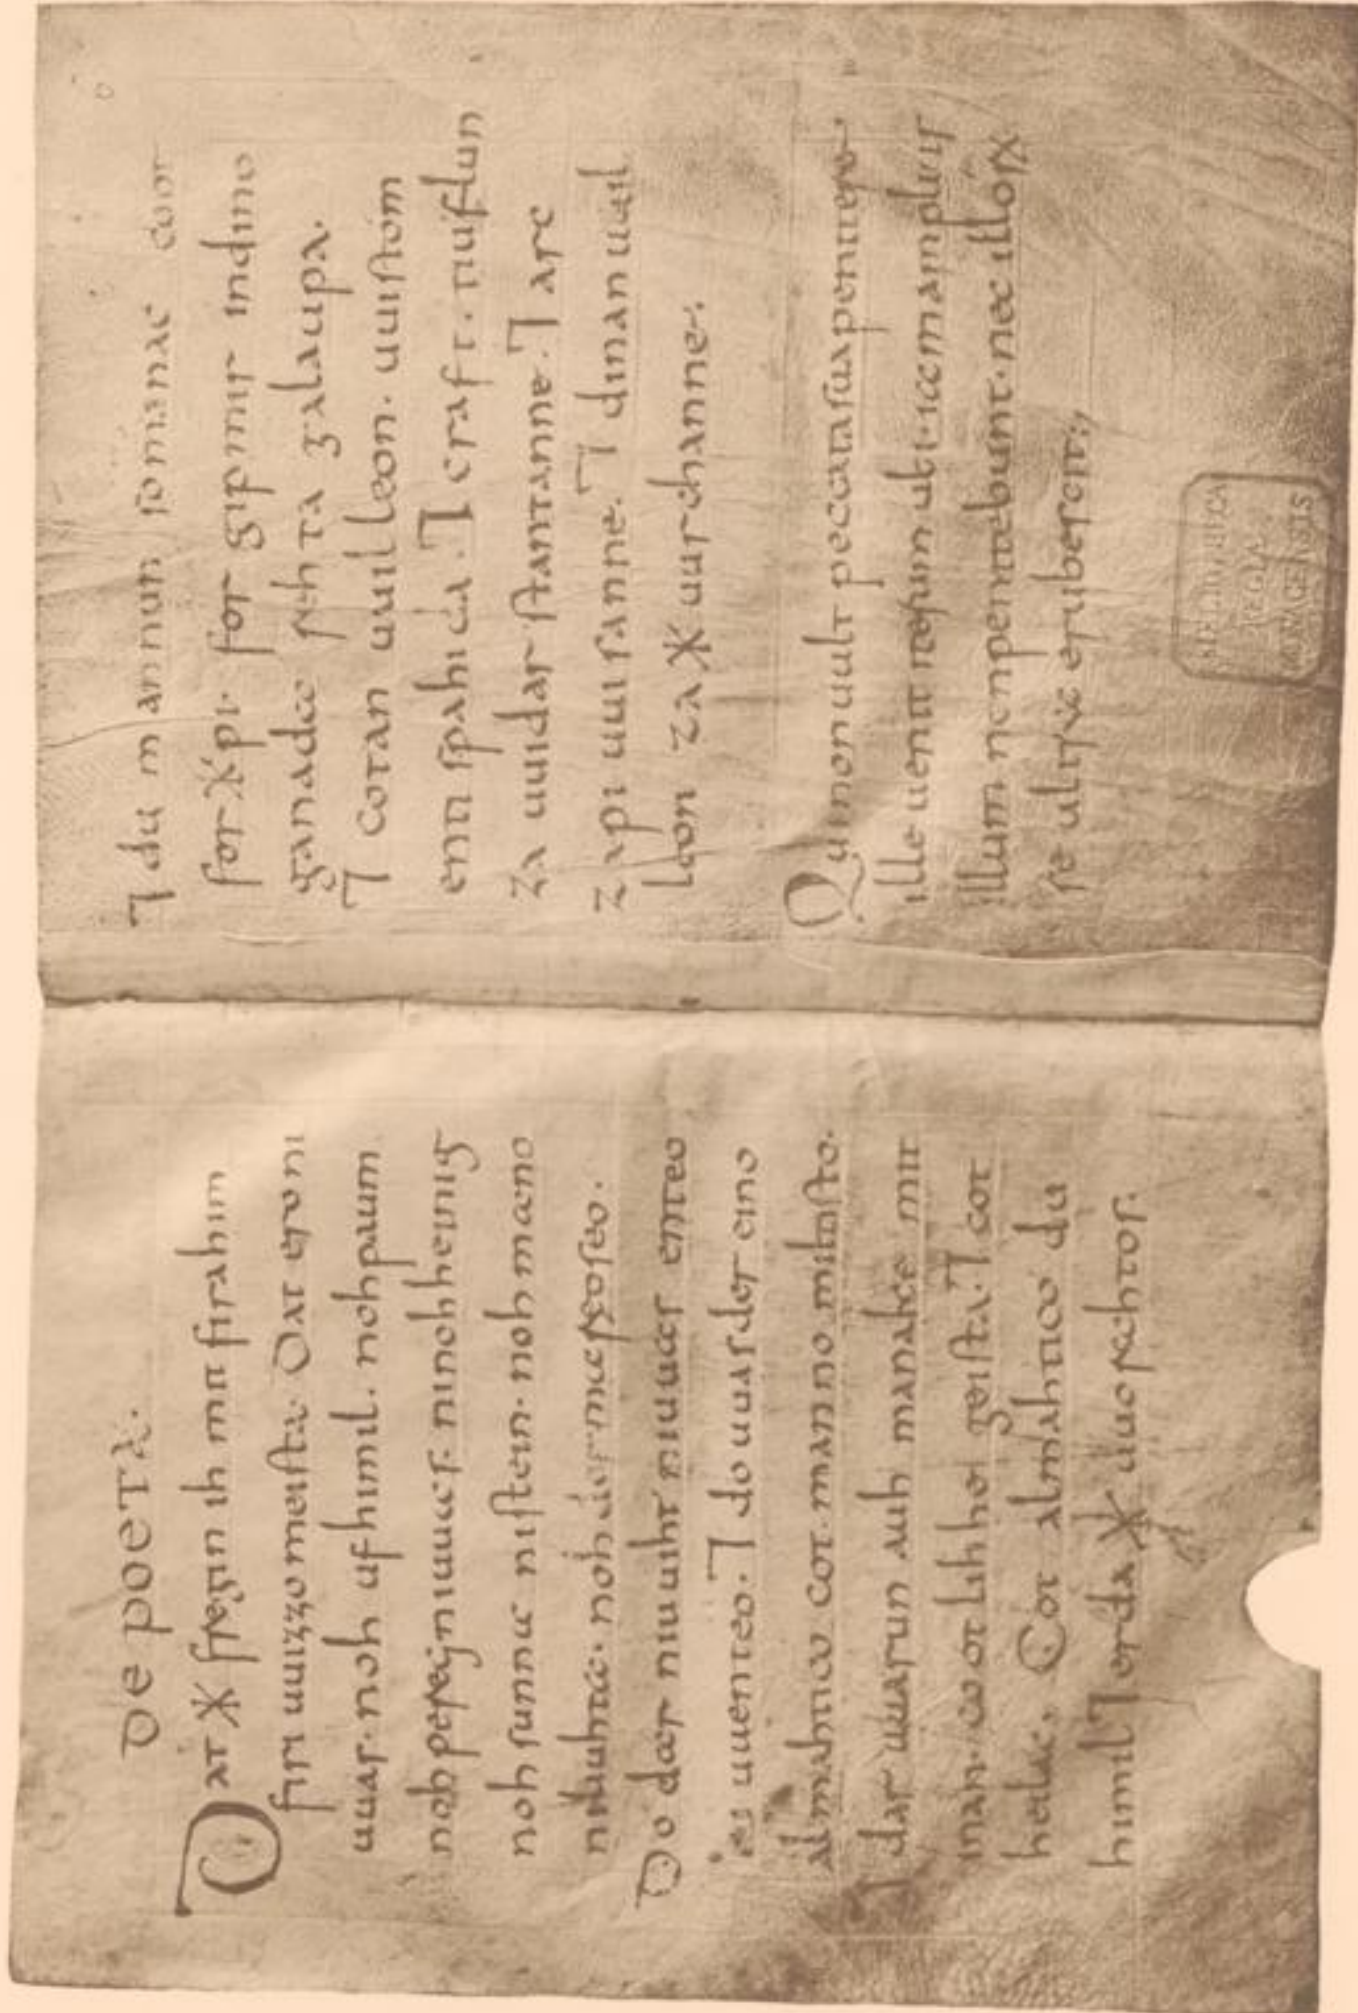 De poeta.
Dat ᚼ fregin ih mit firahim
firi uuizzo meista. Dat ero ni
uuas. noh ufhimil. noh paum
noh pereg niuuas. ninohheinig
noh sunna nistein. noh mano
niliuhta. noh der mareoseo.
Do dar niuuiht niuuas enteo
ni uuenteo. ⁊ do uuas der eino
almahtico cot manno miltisto.
⁊ dar uuarun auh manake mit
inan. cootlihhe geista. ⁊ cot
heilac. Cot almahtico du
himil ⁊ erda ᚼ uuorahtos.
⁊ du mannun so manac coot
for x̄pi. for gipmir indino
ganada rehta galaupa.
⁊ cotan uuilleon. uuistom
enti spahida. ⁊ craft. tiuflun
za uuidar stantanne. ⁊ arc
zapi uuisanne. ⁊ dinan uuil
leon za ᚼ uurchanne.
Qui non uult peccata sua penitere.
ille uenit iterum ubi iam amplius
illum non penitebunt. nec illorꝝ
se ultra erubescit;
BIBLIOTHECA
REGIA
MONACENSIS